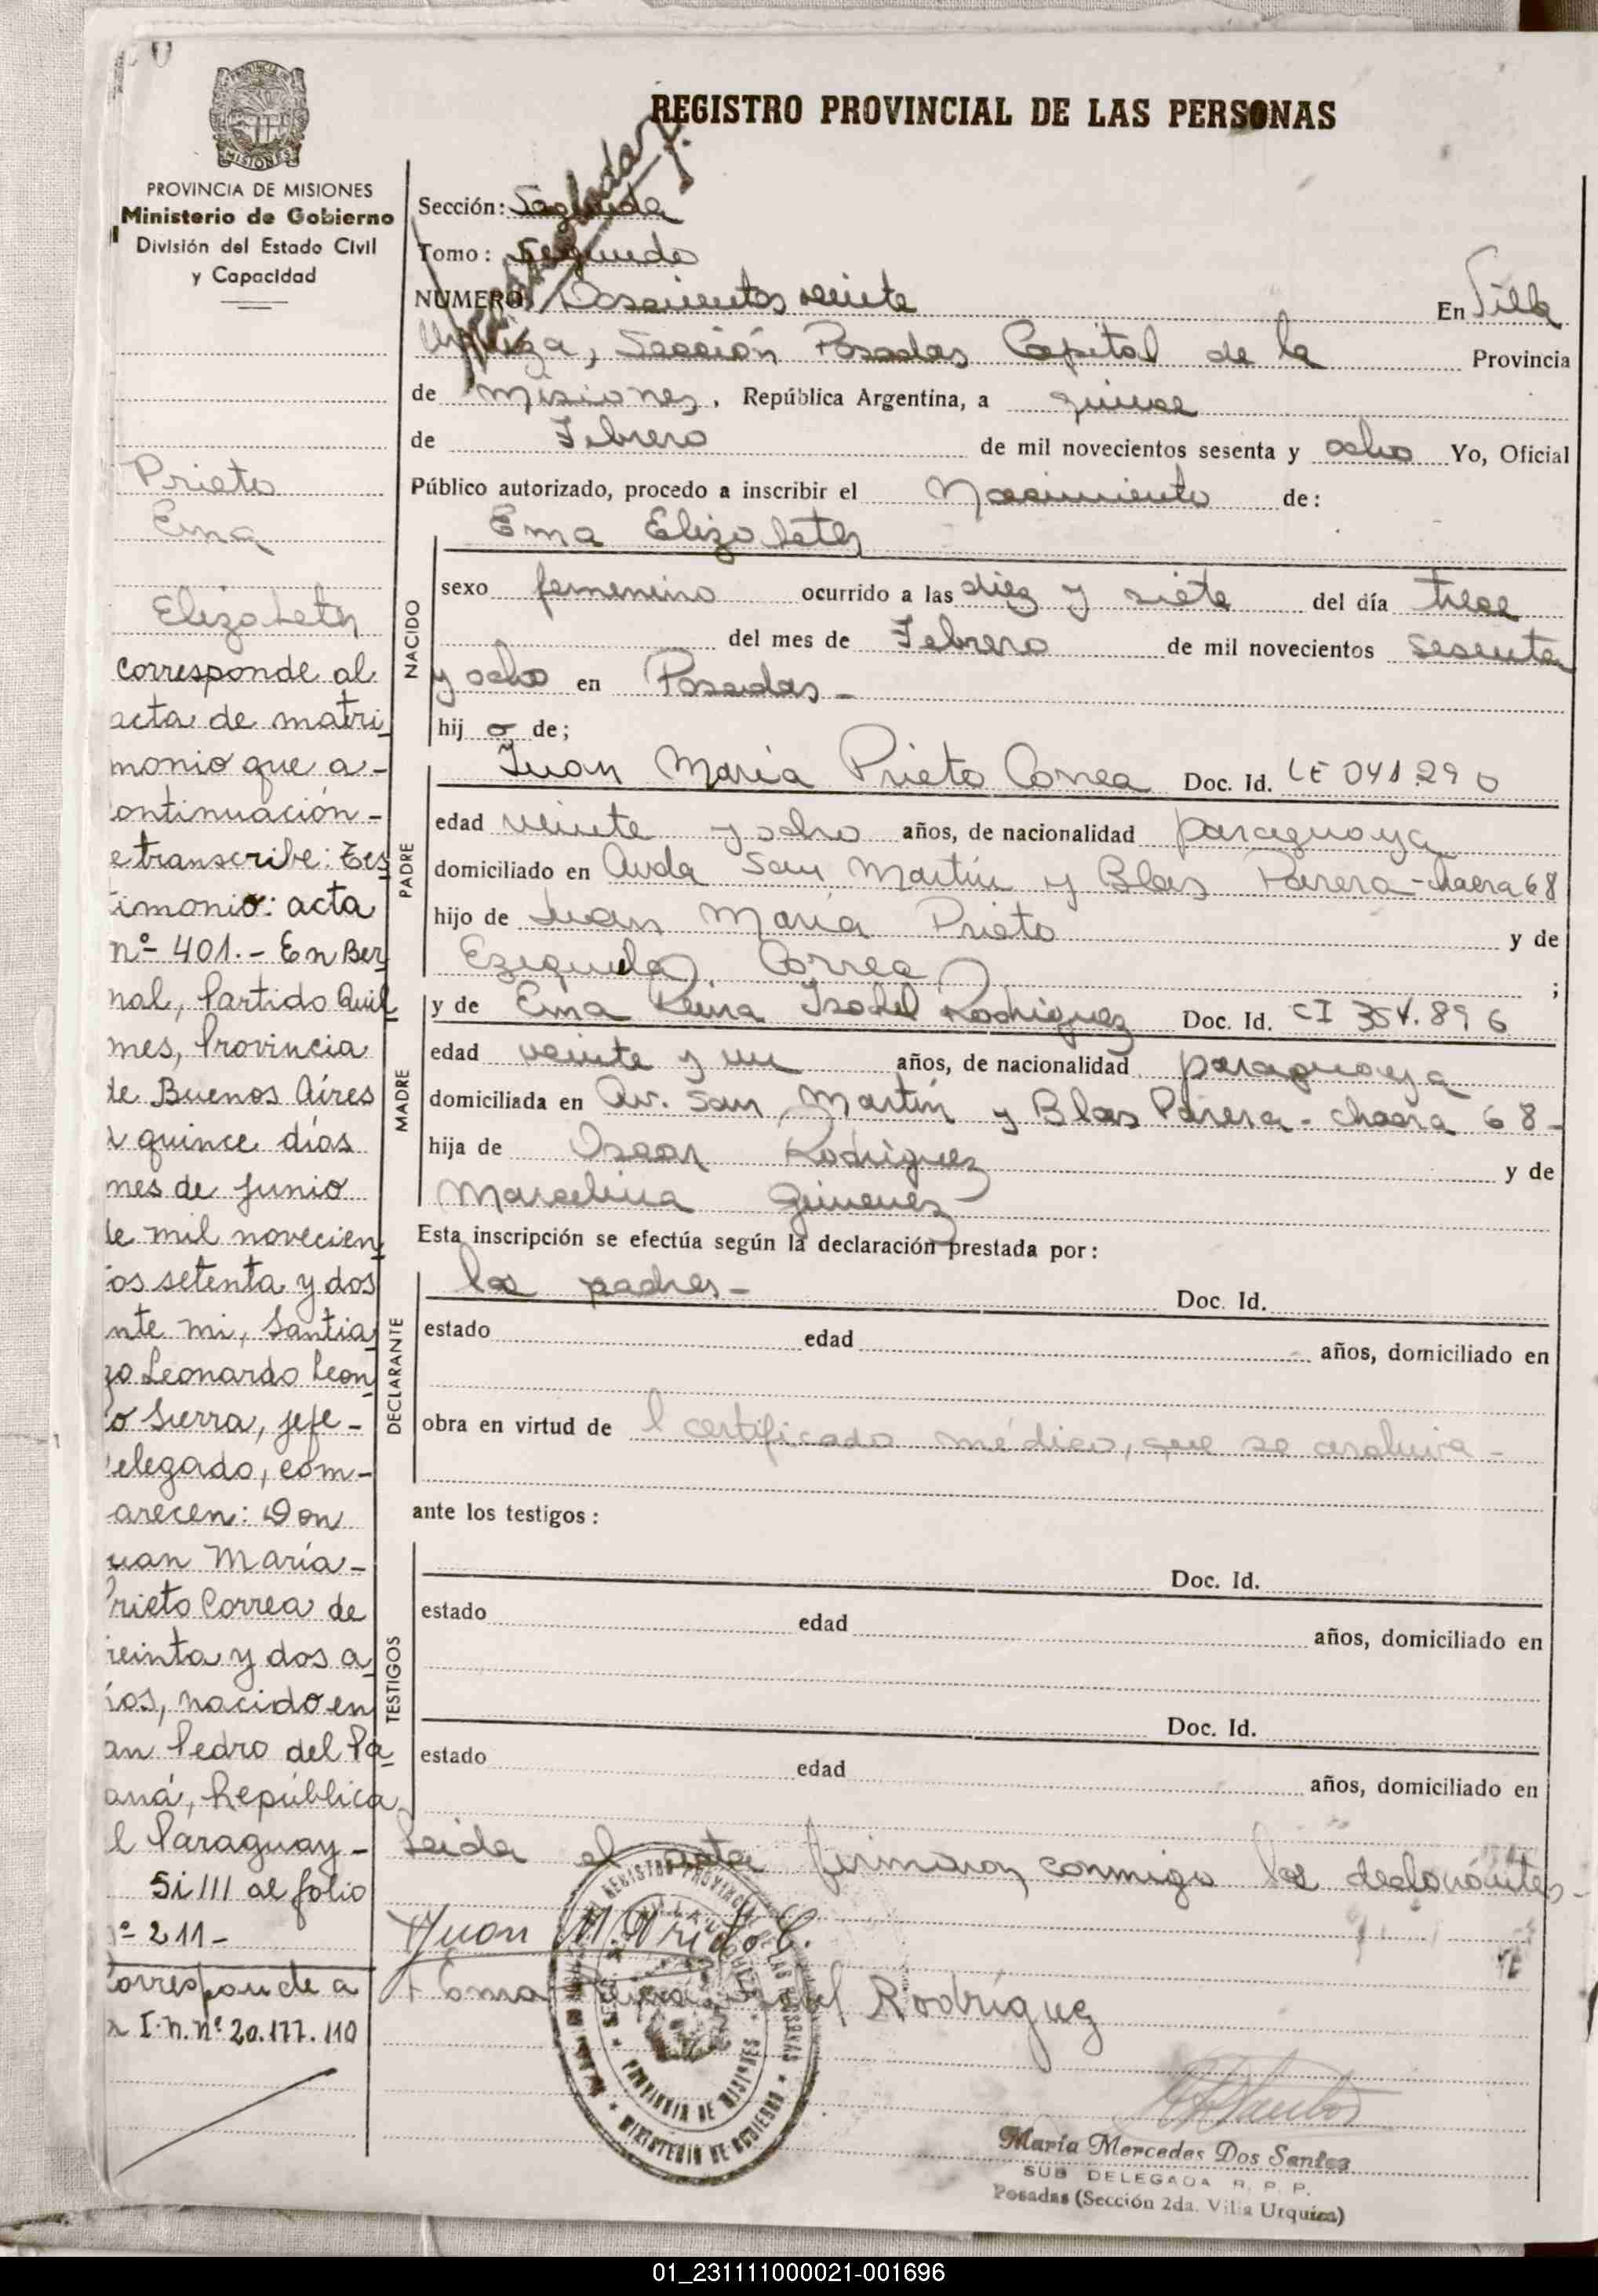 REGISTRO PROVINCIAL DE LAS PERSONAS
MISIONES
PROVINCIA DE MISIONES
Ministerio de Gobierno
División del Estado Civil
y Capacidad
Prieto
Ema
Elizabeth
corresponde al
acta de matri
monio que a-
ontinuación-
e transcribe: Tes
timonio: acta
nº 401.- En Ber
nal, Partido Quil
mes, Provincia
de Buenos Aires
a quince días
mes de junio
de mil novecien
os setenta y dos
nte mi, Santia
go Leonardo Leon
o Sierra, jefe-
elegado, com-
arecen: Don
uan María-
Prieto Correa de
reinta y dos a
ños, nacido en
an Pedro del Pa
aná, República
l Paraguay-
Si III al folio
º 211-
Corresponde a
I.N. nº 20.177.110
Sección: Segunda
Tomo: Segundo
NUMERO Doscientos veinte En Villa
Urquiza, Sección Posadas Capital de la Provincia
de Misiones, República Argentina, a quince
de Febrero de mil novecientos sesenta y ocho Yo, Oficial
Público autorizado, procedo a inscribir el Nacimiento de:
Ema Elizabeth
NACIDO
sexo femenino ocurrido a las diez y siete del día trece
del mes de Febrero de mil novecientos sesenta
y ocho en Posadas-
hij a de;
PADRE
Juan María Prieto Correa Doc. Id. LE 041.290
edad veinte y ocho años, de nacionalidad paraguaya
domiciliado en Avda San Martín y Blas Parera-chacra 68
hijo de Juan María Prieto y de
Ezequiela Correa ;
MADRE
y de Ema Reina Isabel Rodriguez Doc. Id. CI 354.896
edad veinte y un años, de nacionalidad paraguaya
domiciliada en Av. San Martín y Blas Parera - chacra 68-
hija de Oscar Rodriguez y de
Marcelina Gimenez
Esta inscripción se efectúa según la declaración prestada por:
DECLARANTE
los padres- Doc. Id.
estado edad años, domiciliado en
obra en virtud de l certificado médico, que se archiva-
ante los testigos:
TESTIGOS
Doc. Id.
estado edad años, domiciliado en
Doc. Id.
estado edad años, domiciliado en
Leida el acta firmaron conmigo los declarantes-
Juan M. Prieto C.
Ema Reina Isabel Rodríguez
REGISTRO PROVINCIAL DE LAS PERSONAS
PROVINCIA DE MISIONES
MINISTERIO DE GOBIERNO
María Mercedes Dos Santos
SUB DELEGADA R. P. P.
Posadas (Sección 2da. Villa Urquiza)
01_231111000021-001696